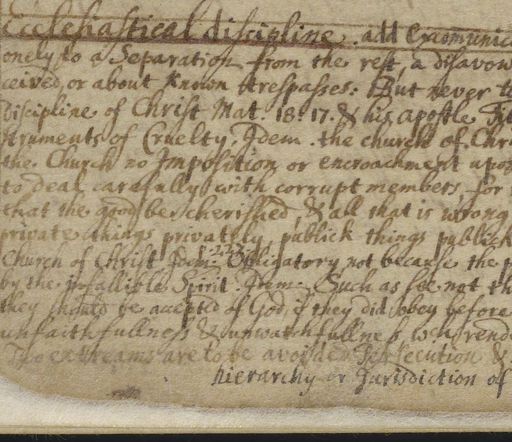 Ecclesiastical discipline. add Excomunica
onely to a Separation from the rest, a disavow
ceived or about known trespasses: But never to
Discipline of Christ Mat. 18. 17. & his Apostle
struments of Cruelty. Idem. the church of Chri
the Church no Imposition or encroachment upon
to deal carefully with corrupt members, for
that the good be cherished, & all that is wrong
private things privately, publick things publick
Church of Christ Idem: Obligatory not because the p
by the infallible Spirit: Idem: Such as see not th
they should be accepted of God, if they did obey before
unfaithfullness & unwatchfullness, wch rend
Two extreams are to be avoided Persecution &
hierarchy or Jurisdiction of